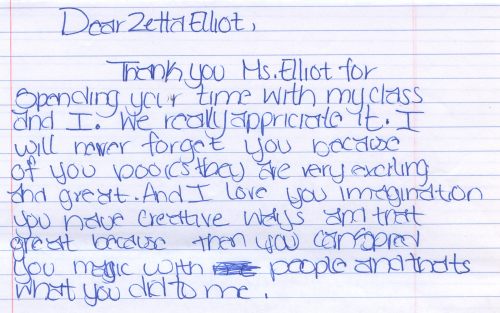 Dear Zetta Elliot,
Thank you Ms. Elliot for
spending your time with my class
and I. We really appriciate it. I
will never forget you because
of you books they are very exciting
and great. And I love you imagination
you have creative ways and that
great because then you can spred
you magic with people and thats
what you did to me.